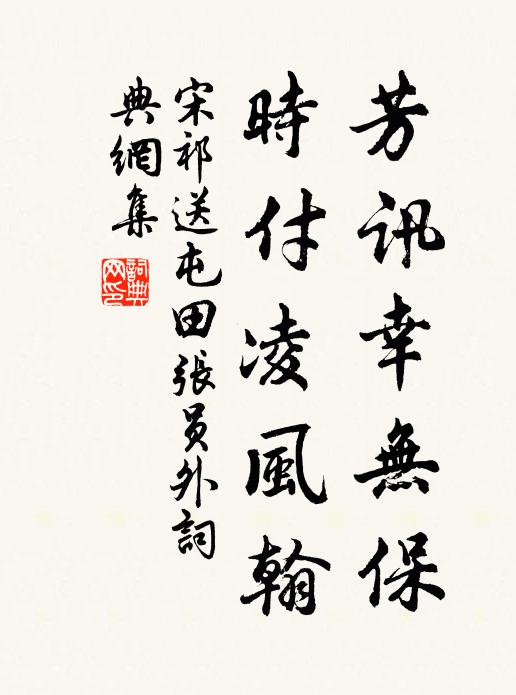 芳訊幸無保
時付凌風翰
宋祁送屯田張員外詞
典網集
詞典网印